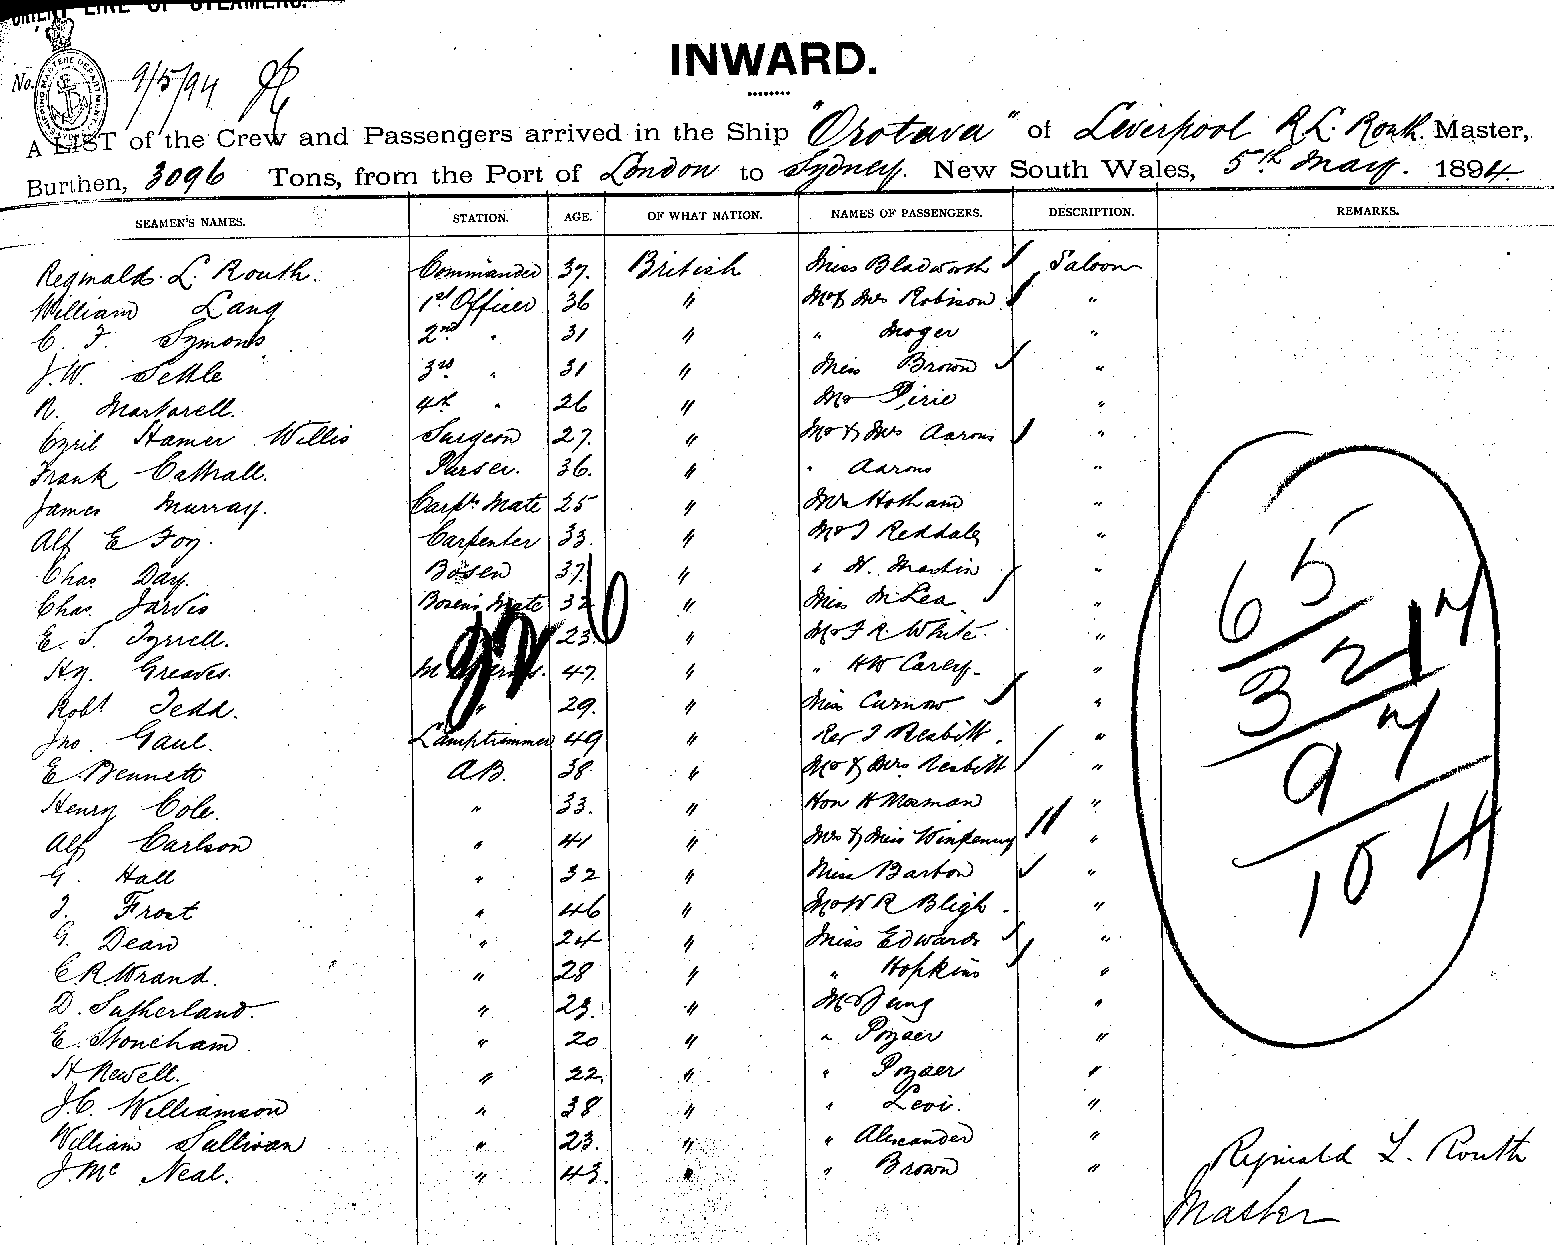 ORIENT LINE OF STEAMERS.
INWARD.
No. 9/5/94
A LIST of the Crew and Passengers arrived in the Ship "Orotava" of Liverpool R L. Routh Master,
Burthen, 3096 Tons, from the Port of London to Sydney. New South Wales, 5th May. 1894.
SEAMEN'S NAMES. STATION. AGE. OF WHAT NATION. NAMES OF PASSENGERS. DESCRIPTION. REMARKS.
Reginald L. Routh. Commander 37. British Miss Bladworth Saloon
William Lang 1st Officer 36 " Mr & Mrs Robinson "
C. F. Symons 2nd " 31 " " Moger "
J.W. Settle 3rd " 31 " Miss Brown "
R. Martorell. 4th " 26 " Mr Pirie "
Cyril Hamer Willis Surgeon 27. " Mr & Mrs Aarons "
Frank Cathrall. Purser. 36. " " Aarons "
James Murray. Carptr Mate 25 " Mr Hotham "
Alf E Foy. Carpenter 33. " Mr J Reddale "
Chas Day. Bosen 37. " " H. Martin "
Chas. Jarvis Bosen's Mate 32 " Miss McLea "
E. J. Tyrrell. 23. " Mr F R White. "
Hy. Greaves. 47. " " HW Carey. "
Robt Tedd. " 29. " Miss Curnow "
Jno. Gaul. Lamptrimmer 49 " Rev J Nesbitt. "
E Bennett A.B. 38 " Mr & Mrs Nesbitt "
Henry Cole. " 33. " Hon H Mosman "
Alf Carlson " 41 " Mrs & Miss Winpenny "
G. Hall " 32 " Miss Barton "
J. Frost " 46 " Mr W R Bligh. "
G. Dean " 24 " Miss Edwards "
E R Wrand. " 28 " " Hopkins "
D. Sutherland. " 23. " Mr Jung "
E. Stoneham " 20 " " Poyzer "
H Newell. " 22. " " Poyzer "
J.C. Williamson " 38 " " Levi. "
William Sullivan " 23. " " Alexander "
J. Mc Neal. " 43. " " Brown "
32 6
6 5
3 2 1 4
9 4
10 4
Reginald L. Routh
Master